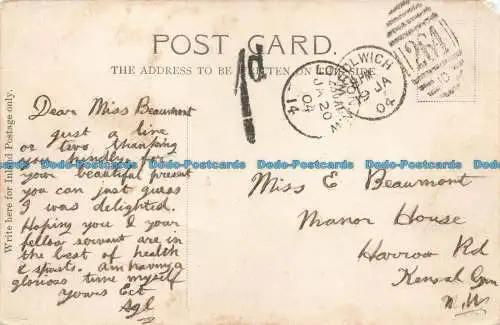 POST CARD.
THE ADDRESS TO BE WRITTEN ON THIS SIDE
Write here for Inland Postage only.
1d
WOOLWICH
JA
04
LONDON
JA 20
04
14
264
Dear Miss Beaumont
just a line
or two thanking
you kindly for
your beautiful present
you can just guess
I was delighted.
Hoping you & your
fellow servant are in
the best of health
& spirits. Am having a
glorious time myself
Yours Ect
Miss E Beaumont
Manor House
Harrow Rd
Kensal Grn
N.W.
Dodo-Postcards Dodo-Postcards Dodo-Postcards Dodo-Postcards Dodo-Postcards Dodo-Postcards